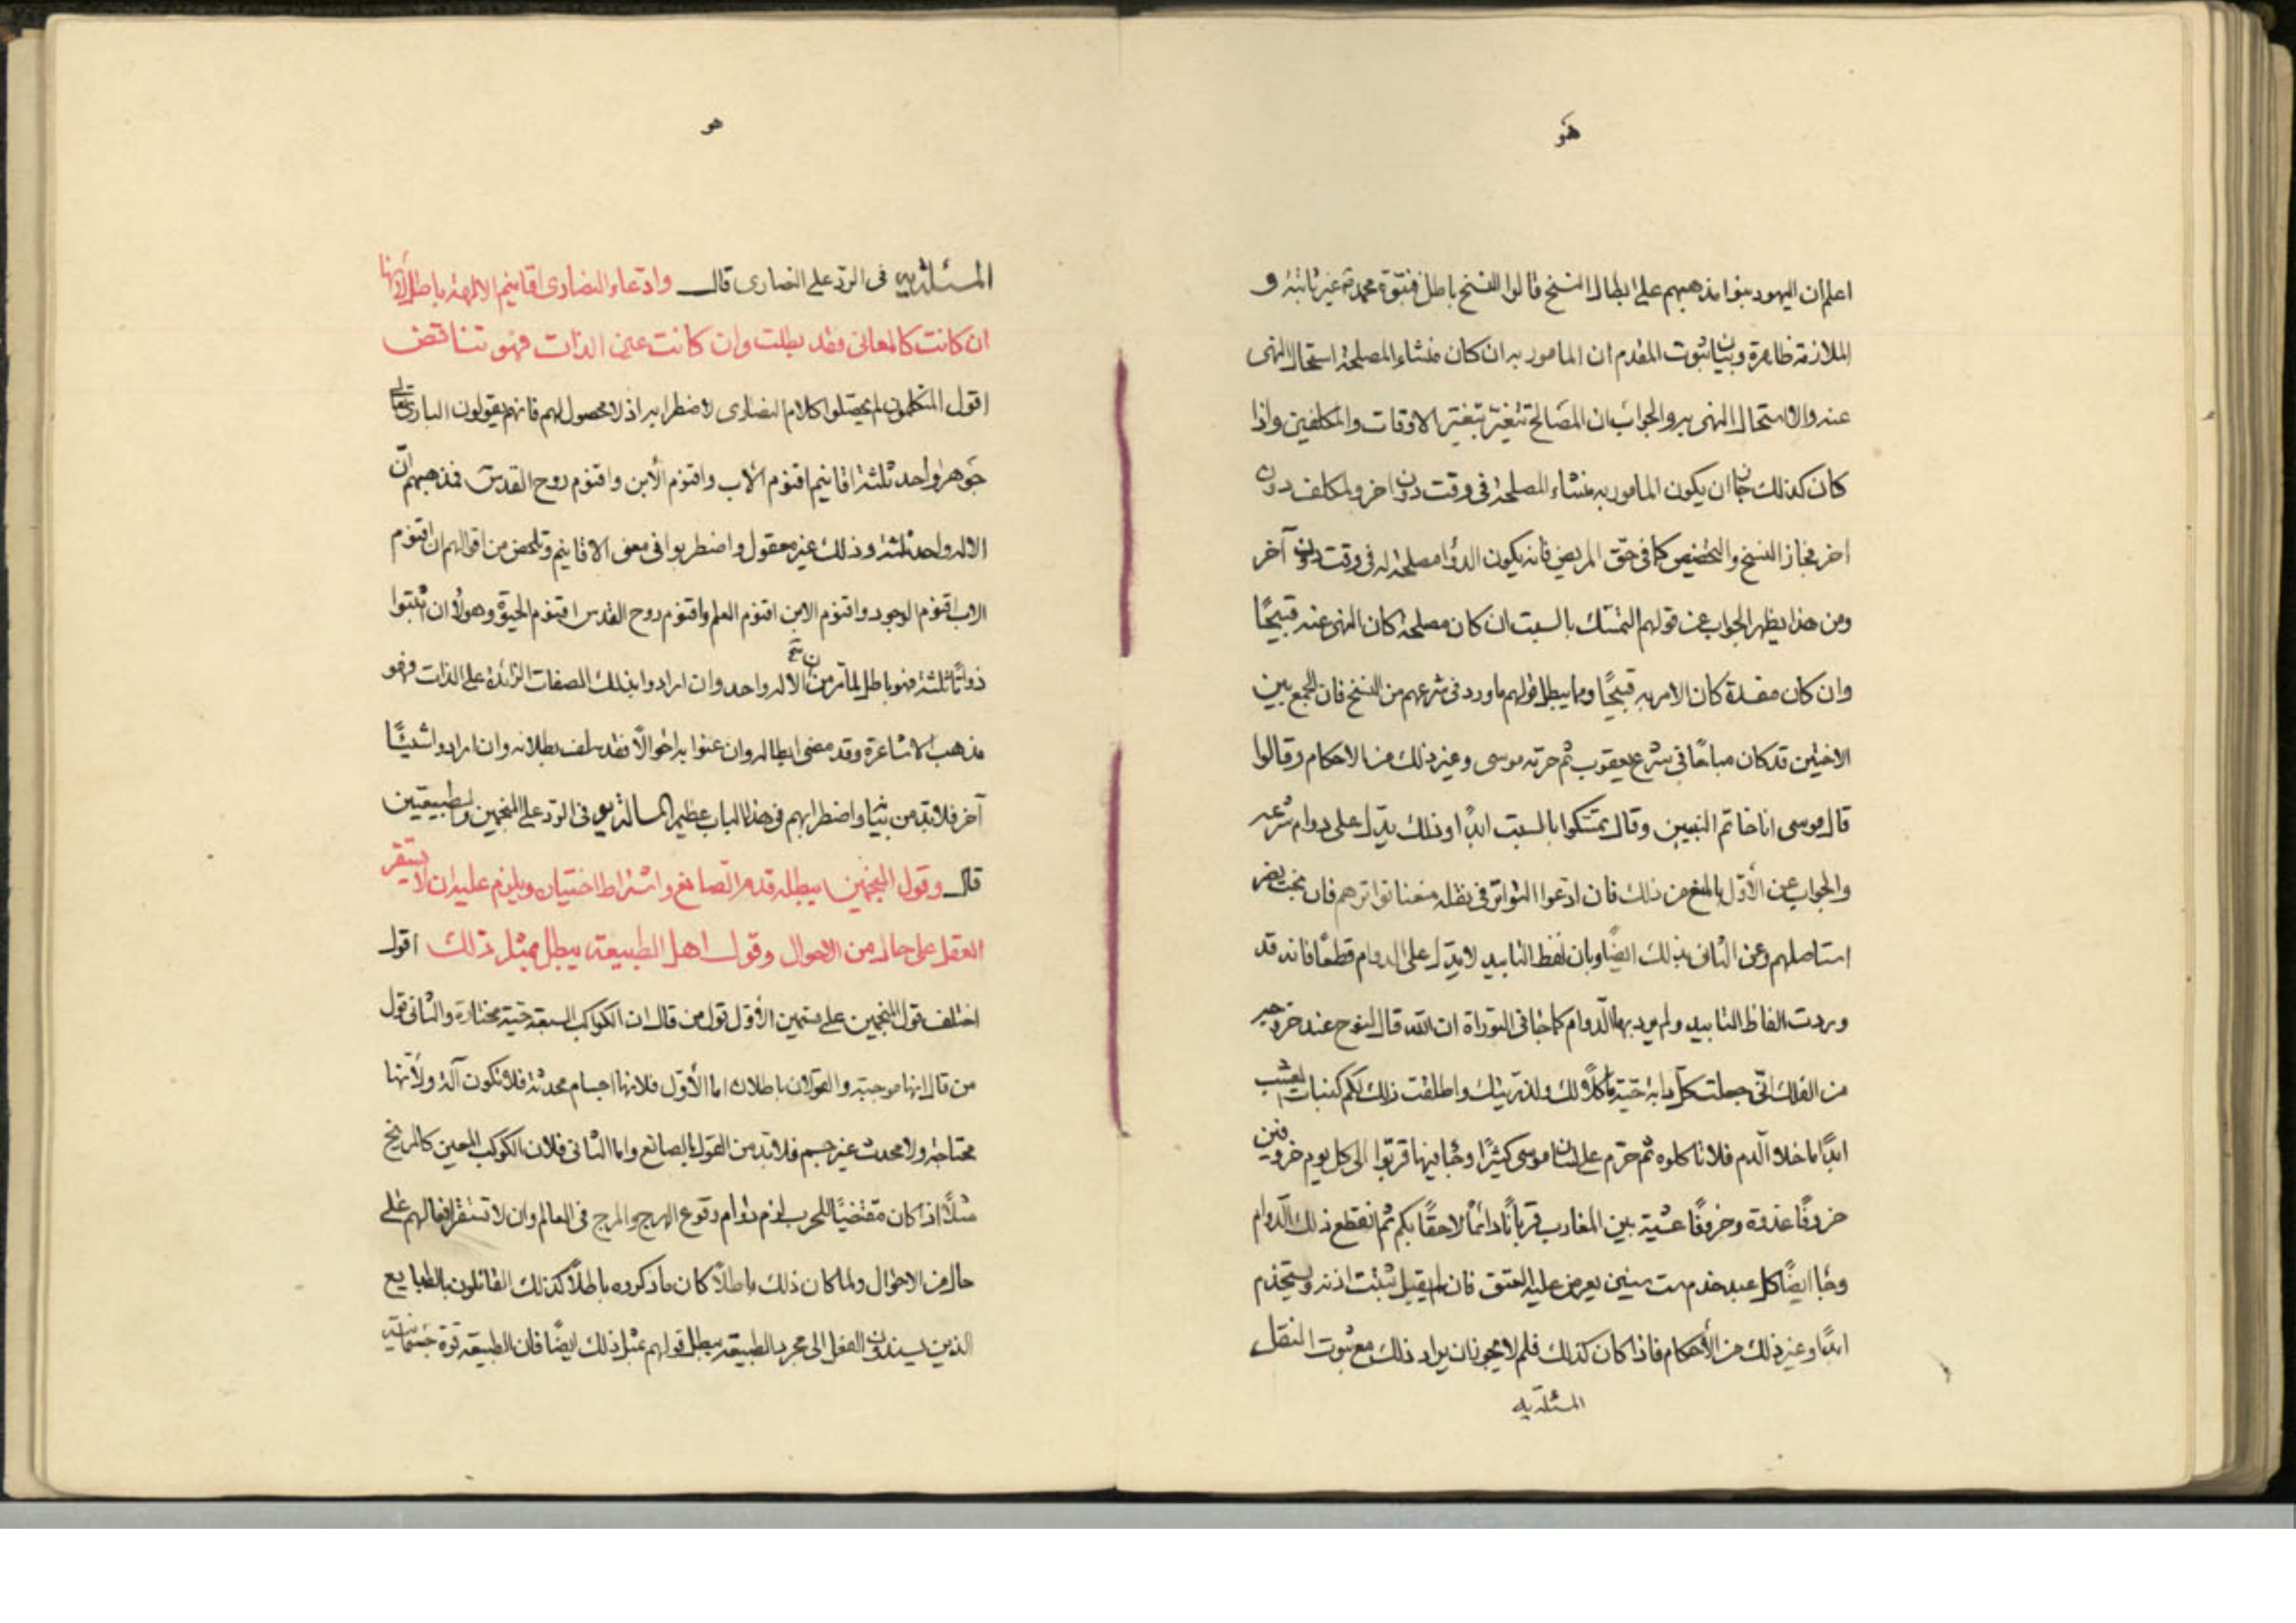 هو
اعلم ان اليهود بنوا مذهبهم على ابطال النسخ قالوا النسخ باطل فنبوة محمد غير ثابتة و
الملازمة ظاهرة وبيان ثبوت المقدم ان المامور به ان كان منشاء المصلحة استحال النهى
عنه والا استحال النهى به والجواب ان المصالح تتغير بتغير الاوقات والمكلفين واذا
كان كذلك جاز ان يكون المامور به منشاء المصلحة فى وقت دون اخر ولمكلف دون
اخر فجاز النسخ والتخصيص كما فى حق المريض فانه يكون الدواء مصلحة له فى وقت دون آخر
ومن هذا يظهر الجواب عن قولهم التمسك بالسبت ان كان مصلحة كان النهى عنه قبيحًا
وان كان مفسدة كان الامر به قبيحًا ومما يبطل قولهم ما ورد فى شرعهم من النسخ فان الجمع بين
الاختين قد كان مباحًا فى شرع يعقوب ثم حرمه موسى وغير ذلك من الاحكام وقالوا
قال موسى انا خاتم النبيين وقال تمسكوا بالسبت ابدًا وذلك يدل على دوام شرعه
والجواب عن الأول بالمنع من ذلك فان ادعوا التواتر فى نقله منعنا تواترهم فان بخت نصر
استاصلهم وعن الثانى بذلك ايضًا وبان لفظ التابيد لا يدل على الدوام قطعًا فانه قد
وردت الفاظ التابيد ولم يرد بها الدوام كما جا فى التوراة ان الله قال لنوح عند خروجه
من الفلك انى جعلت كل دابة حية ماكلًا لك ولذريتك واطلقت ذلك لكم كنبات العشب
ابدًا ما خلا الدم فلا تاكلوه ثم حرم على لسان موسى كثيرًا وجا فيها قربوا الى كل يوم خروفين
خروفًا غدوة وخروفًا عشية بين المغارب قربانًا دائمًا لاحقًا بكم ثم انقطع ذلك الدوام
وجا ايضًا كل عبد خدم ست سنين يعرض عليه العتق فان لم يقبل ثقبت اذنه ويستخدم
ابدًا وغير ذلك من الأحكام فاذا كان كذلك فلم لا يجوز ان يراد ذلك مع ثبوت النقل
المسئلة يه
هو
المسئلة يه فى الرد على النصارى قال وادعاء النصارى اقانيم الالهية باطل لأنها
ان كانت كالمعانى فقد بطلت وان كانت عين الذات فهو تناقض
اقول المتكلمون لم يحصلوا كلام النصارى لاضطرابه اذ لا محصول لهم فانهم يقولون البارى تعالى
جوهر واحد ثلثة اقانيم اقنوم الأب واقنوم الأبن واقنوم روح القدس فمذهبهم ان
الاله واحد ثلثة وذلك غير معقول واضطربوا فى معنى الاقانيم وتلخص من اقوالهم ان اقنوم
الاب اقنوم الوجود واقنوم الابن اقنوم العلم واقنوم روح القدس اقنوم الحيوة وهولاء ان اثبتوا
ذواتًا ثلثة فهو باطل لما مر من ان الاله واحد وان ارادوا بذلك الصفات الزائدة على الذات فهو
مذهب الاشاعرة وقد مضى ابطاله وان عنوا به احوالًا فقد سلف بطلانه وان ارادوا شيئًا
آخر فلابد من بيانه واضطرابهم فى هذا الباب عظيم المسالة يو فى الرد على المنجمين والطبيعيين
قال وقول المنجمين يبطله قدم الصانع واشتراط اختياره ويلزم عليه ان لا يستقر
الفعل على حال من الاحوال وقول اهل الطبيعة يبطل بمثل ذلك اقول
اختلف قول المنجمين على قسمين الأول قول من قال ان الكواكب السبعة حية مختارة والثانى قول
من قال انها موجبة والقولان باطلان اما الأول فلانها اجسام محدثة فلا تكون آلهة ولأنها
محتاجة ولا محدث غير جسم فلابد من القول بالصانع واما الثانى فلان الكوكب المعين كالمريخ
مثلًا اذا كان مقتضيًا للحرب لزم دوام وقوع الهرج والمرج فى العالم وان لا تستقر افعالهم على
حال من الاحوال ولما كان ذلك باطلًا كان ما ذكروه باطلًا كذلك القائلون بالطبايع
الذين يسندون الفعل الى مجرد الطبيعة يبطل قولهم بمثل ذلك ايضًا فان الطبيعة قوة جسمانية